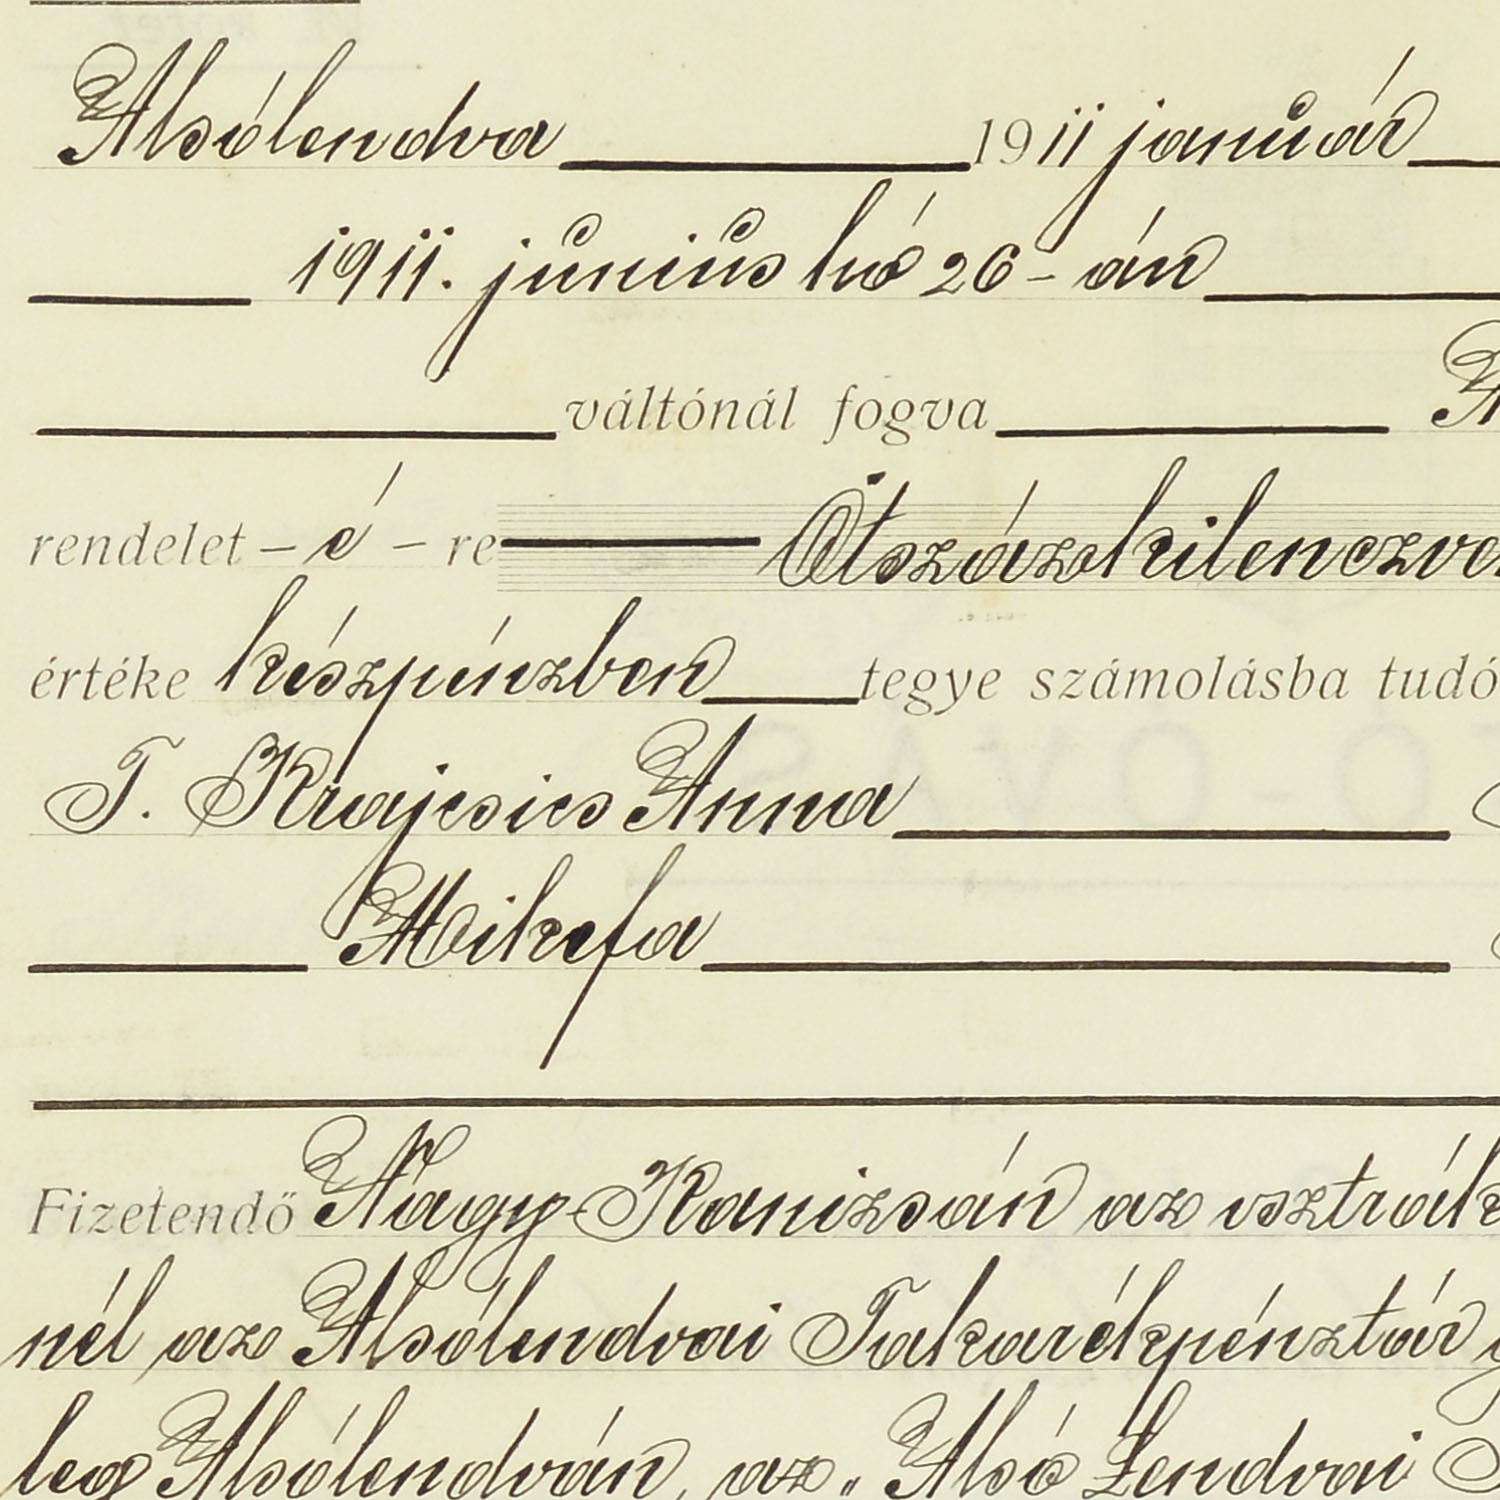 Alsólendva 1911 január
1911. június hó 26-án
váltónál fogva
rendelet - é - re Ötszázkilenczve
értéke készpénzben tegye számolásba tudó
T. Krajcsics Anna
Mikefa
Fizetendő Nagy-Kanizsán az osztrák
nél az Alsólendvai Takarékpénztár
leg Alsólendván, az „Alsó Lendvai